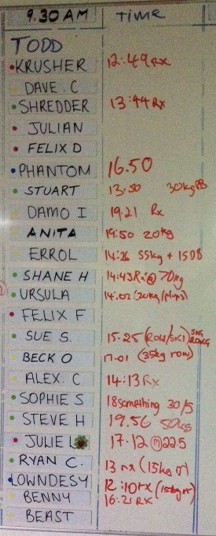 9.30 AM TIME
TODD
KRUSHER 12:49 Rx
DAVE. C
SHREDDER 13:44 Rx
JULIAN
FELIX D
PHANTOM 16.50
STUART 13:50 30kg
DAMO I 19.21 Rx
ANITA 14:50 20kg
ERROL 14:26 55kg + 15DB
SHANE H 14:43 Rx @ 70kg
URSULA 14:02
FELIX F
SUE S. 15.25 (ROW/SKI)
BECK O 17.01 (35kg row)
ALEX. C 14:13 Rx
SOPHIE S 18something 30/5
STEVE H 19.56 50kg
JULIE L 17.12 22.5
RYAN C. 13 rx (15kg
LOWNDESY 12:10rx
BENNY 16:21 RX
BEAST